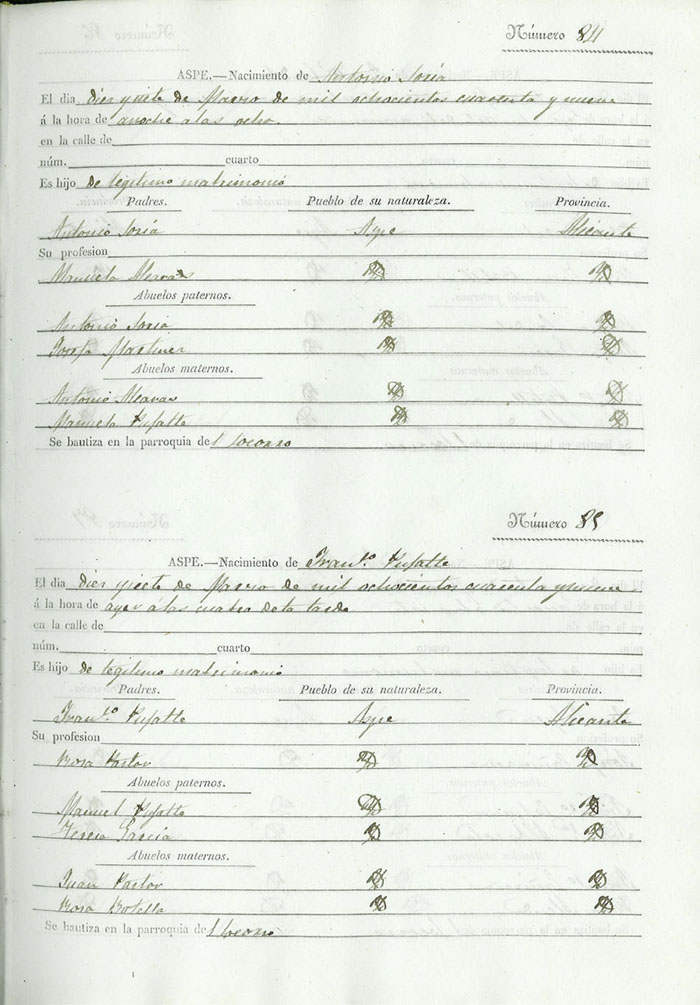 Número 84
ASPE.—Nacimiento de Antonio Soria
El dia diez y siete de Marzo de mil ochocientos cuarenta y nueve
á la hora de anoche a las ocho.
en la calle de
núm. cuarto
Es hijo de legitimo matrimonio
Padres. Pueblo de su naturaleza. Provincia.
Antonio Soria Aspe Alicante
Su profesion
Manuela
Abuelos paternos.
Antonio Soria
Josefa Martinez
Abuelos maternos.
Antonio
Manuela Pujalte
Se bautiza en la parroquia del Socorro
Número 85
ASPE.—Nacimiento de Fran.co Pujalte
El dia diez y siete de Marzo de mil ochocientos cuarenta y nueve
á la hora de ayer a las cuatro de la tarde
en la calle de
núm. cuarto
Es hijo de legitimo matrimonio
Padres. Pueblo de su naturaleza. Provincia.
Fran.co Pujalte Aspe Alicante
Su profesion
Rosa Pastor
Abuelos paternos.
Manuel Pujalte
Teresa Garcia
Abuelos maternos.
Juan Pastor
Rosa Botella
Se bautiza en la parroquia del Socorro